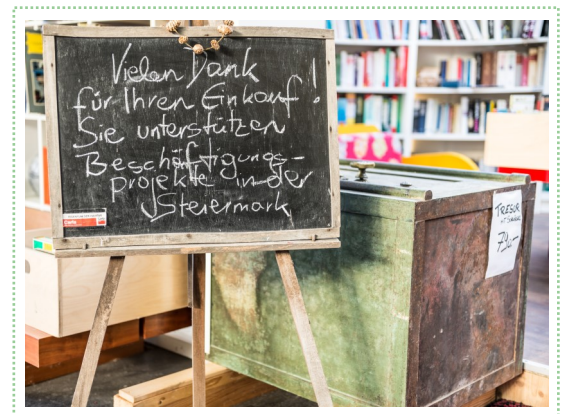 Vielen Dank
für Ihren Einkauf!
Sie unterstützen
Beschäftigungs-
projekte in der
Steiermark
TRESOR
790,-